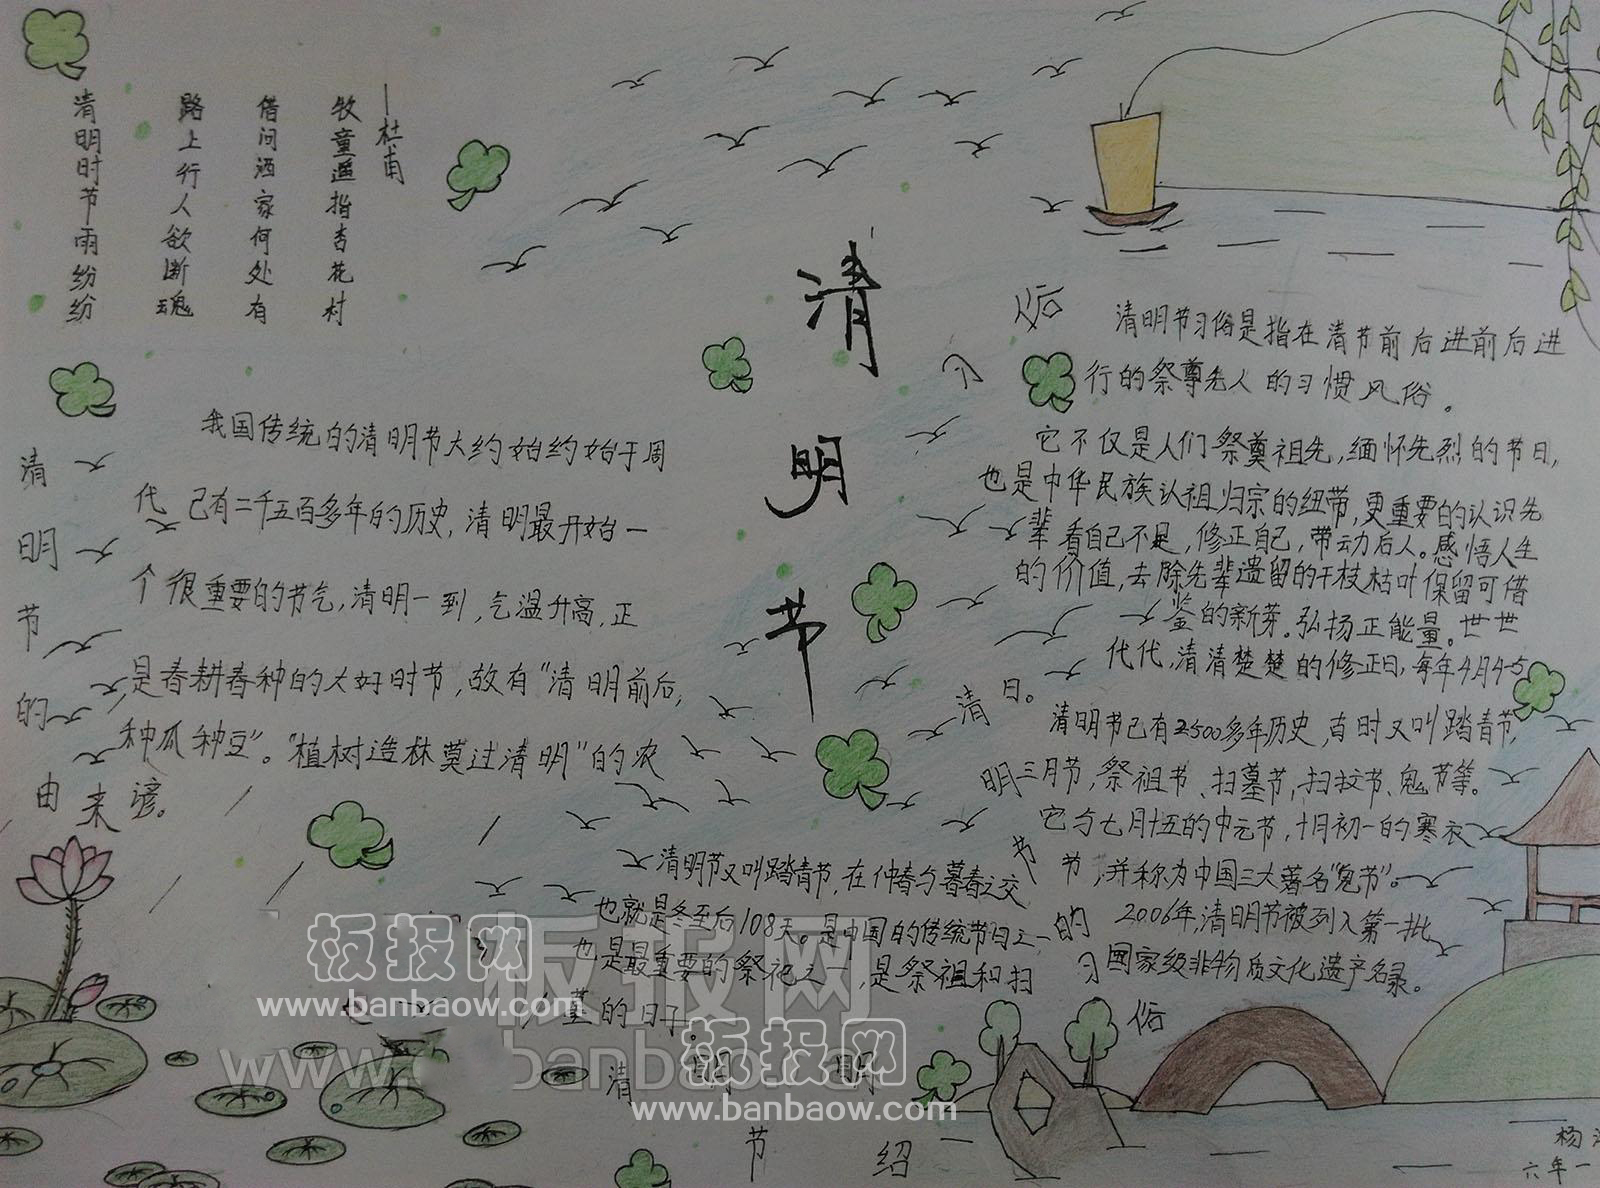 清明时节雨纷纷
路上行人欲断魂
借问酒家何处有
牧童遥指杏花村
—杜甫
清明节
清明节的由来
谚。
我国传统的清明节大约始约始于周
代 已有二千五百多年的历史,清明最开始一
个很重要的节气,清明一到,气温升高,正
是春耕春种的大好时节,故有“清明前后,
种瓜种豆”。“植树造林莫过清明”的农
俗
习
清明节习俗是指在清节前后进前后进
行的祭尊先人的习惯风俗。
它不仅是人们祭奠祖先,缅怀先烈的节日,
也是中华民族认祖归宗的纽带,更重要的认识先
辈看自己不足,修正自己,带动后人。感悟人生
的价值,去除先辈遗留的干枝枯叶保留可借
鉴的新芽。弘扬正能量。世世
代代,清清楚楚的修正日,每年4月4-5
日。
清明节已有2500多年历史,古时又叫踏青节,
三月节,祭祖节、扫墓节,扫坟节、鬼节等。
它与七月十五的中元节,十月初一的寒衣
节,并称为中国三大著名“鬼节”。
2006年,清明节被列入第一批
国家级非物质文化遗产名录。
清明节的习俗
清明节又叫踏青节,在仲春与暮春之交
也就是冬至后108天。是中国的传统节日之一
也是最重要的祭祀之一,是祭祖和扫
墓的日子。
清明节
绍
板报网
www.banbaow.com
板报网
www.banbaow.com
板报网
杨
六年一